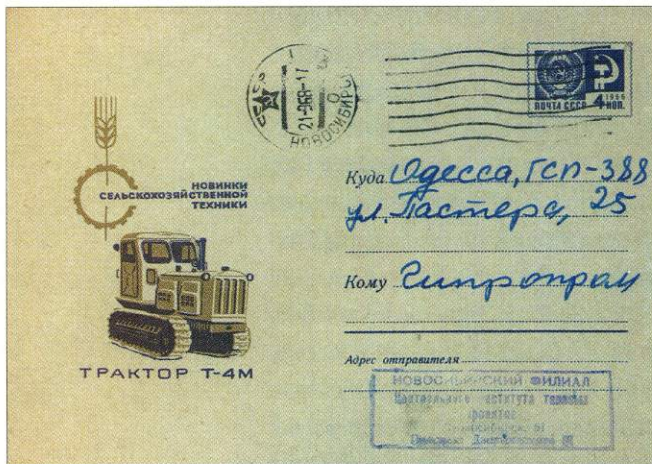 СССР
21-968-17
НОВОСИБИРС
1966
ПОЧТА СССР 4 КОП.
НОВИНКИ
СЕЛЬСКОХОЗЯЙСТВЕННОЙ
ТЕХНИКИ
ТРАКТОР Т-4М
Куда Одесса, ГСП-388
ул. Пастера, 25
Кому Гипропром
Адрес отправителя
НОВОСИБИРСКИЙ ФИЛИАЛ